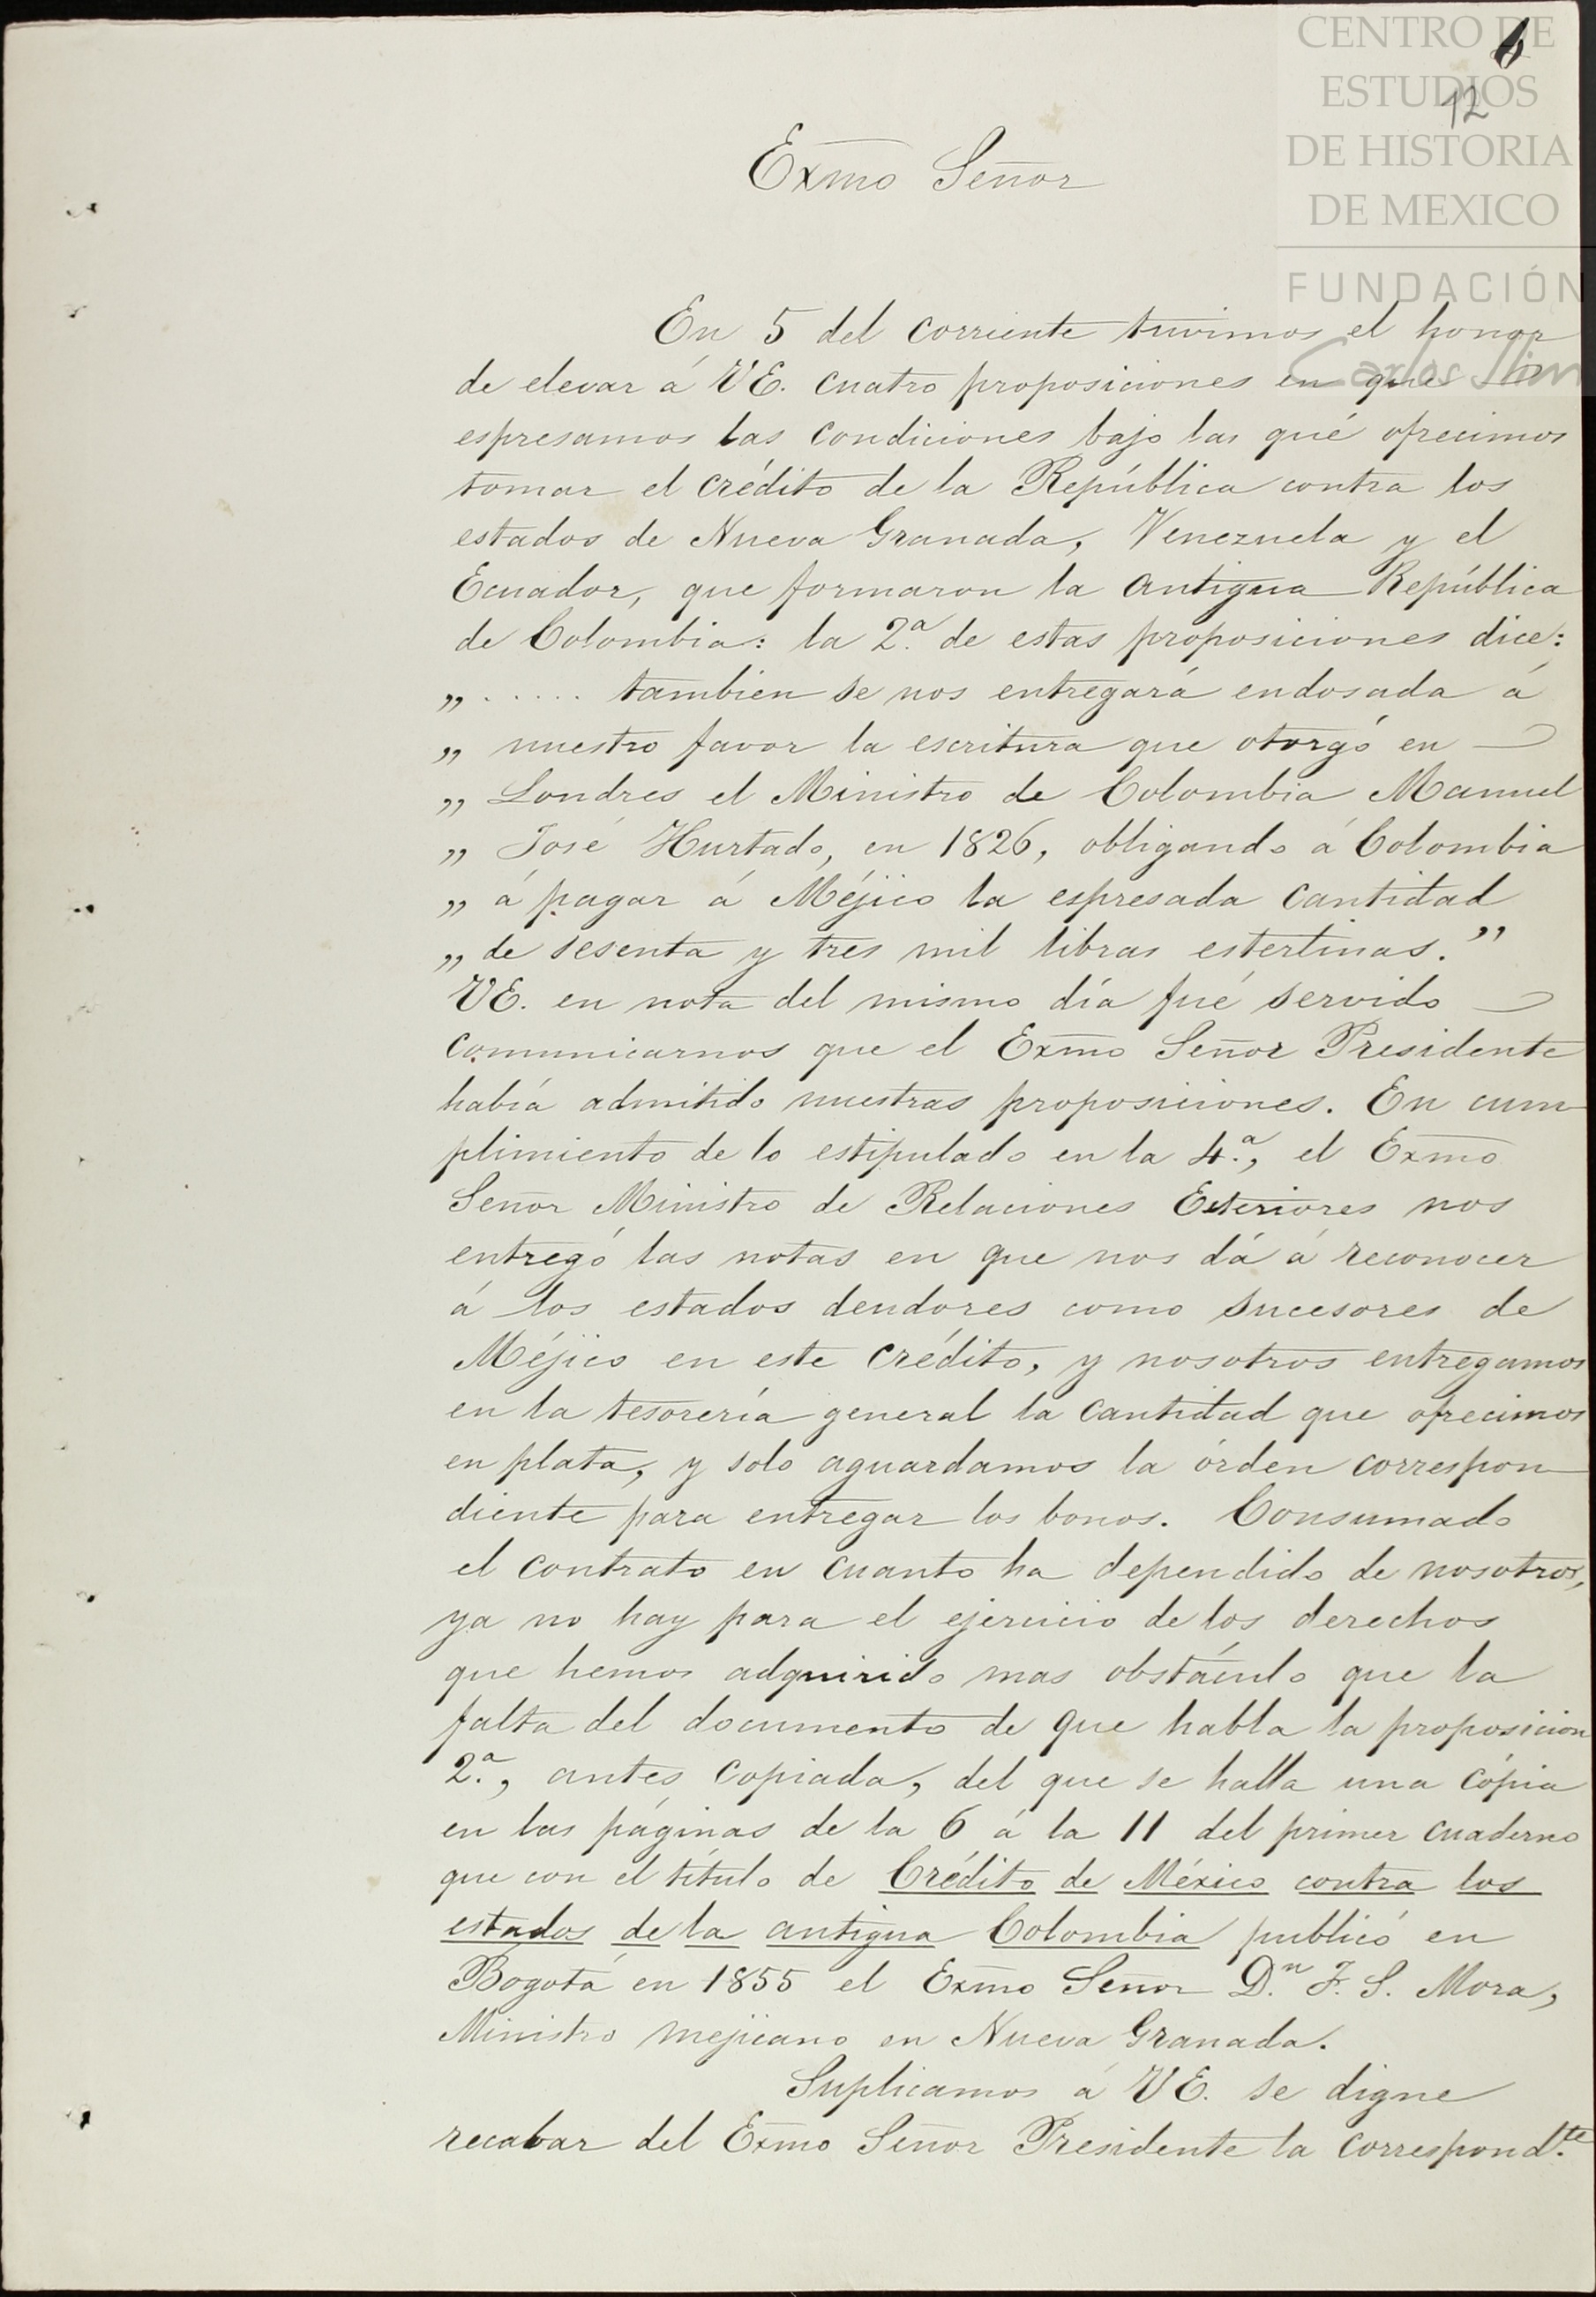 CENTRO DE
ESTUDIOS
DE HISTORIA
DE MEXICO
FUNDACIÓN
Carlos Slim
12
Exmo Señor
En 5 del corriente tuvimos el honor
de elevar á VE. cuatro proposiciones en que
espresamos las condiciones bajo las qué ofrecimos
tomar el crédito de la República contra los
estados de Nueva Granada, Venezuela y el
Ecuador, que formaron la antigua República
de Colombia: la 2.ª de estas proposiciones dice:
„ ..... tambien se nos entregará endosada á
„ nuestro favor la escritura que otorgó en
„ Londres el Ministro de Colombia Manuel
„ José Hurtado, en 1826, obligando á Colombia
„ á pagar á Méjico la espresada cantidad
„ de sesenta y tres mil libras esterlinas.”
VE. en nota del mismo día fué servido
comunicarnos que el Exmo Señor Presidente
había admitido nuestras proposiciones. En cum
plimiento de lo estipulado en la 4.ª, el Exmo
Señor Ministro de Relaciones Esteriores nos
entregó las notas en que nos dá á reconocer
á los estados deudores como sucesores de
Méjico en este crédito, y nosotros entregamos
en la tesorería general la cantidad que ofrecimos
en plata, y solo aguardamos la órden correspon
diente para entregar los bonos. Consumado
el contrato en cuanto ha dependido de nosotros,
ya no hay para el ejercicio de los derechos
que hemos adquirido mas obstáculo que la
falta del documento de que habla la proposicion
2.ª, antes copiada, del que se halla una cópia
en las páginas de la 6 á la 11 del primer cuaderno
que con el título de Crédito de México contra los
estados de la antigua Colombia publicó en
Bogotá en 1855 el Exmo Señor D.n F. S. Mora,
Ministro mejicano en Nueva Granada.
Suplicamos á VE. se digne
recabar del Exmo Señor Presidente la correspond.te